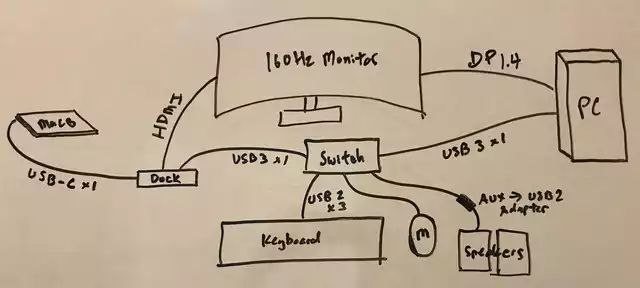 160Hz Monitor
DP 1.4
HDMI
PC
MacB
USB-C x1
Dock
USB3 x1
Switch
USB 3 x1
USB 2
x3
AUX → USB2
Adapter
Keyboard
M
Speakers